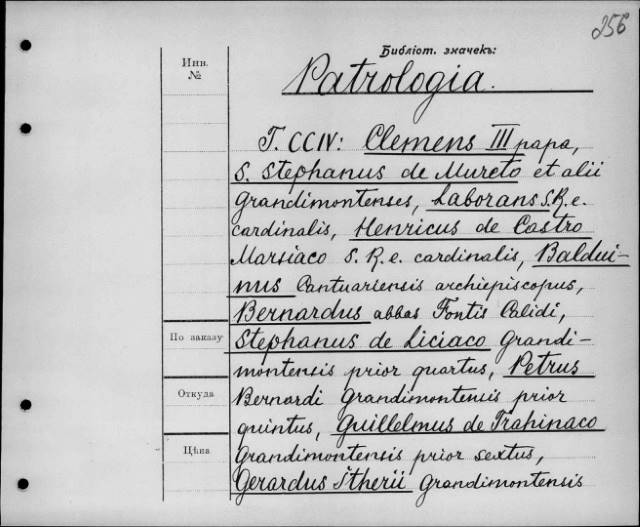 256
Библіот. значекъ:
Инв.
№
Patrologia.
T. CCIV: Clemens III papa,
S. Stephanus de Mureto et alii
Grandimontenses, Laborans S. R. e.
cardinalis, Henricus de Castro
Marsiaco S. R. e. cardinalis, Baldui-
nus Cantuariensis archiepiscopus,
Bernardus abbas Fontis Calidi,
По заказу
Stephanus de Liciaco Grandi-
montensis prior quartus, Petrus
Откуда
Bernardi Grandimontensis prior
quintus, Guillelmus de Trahinaco
Цѣна
Grandimontensis prior sextus,
Gerardus Itherii Grandimontensis